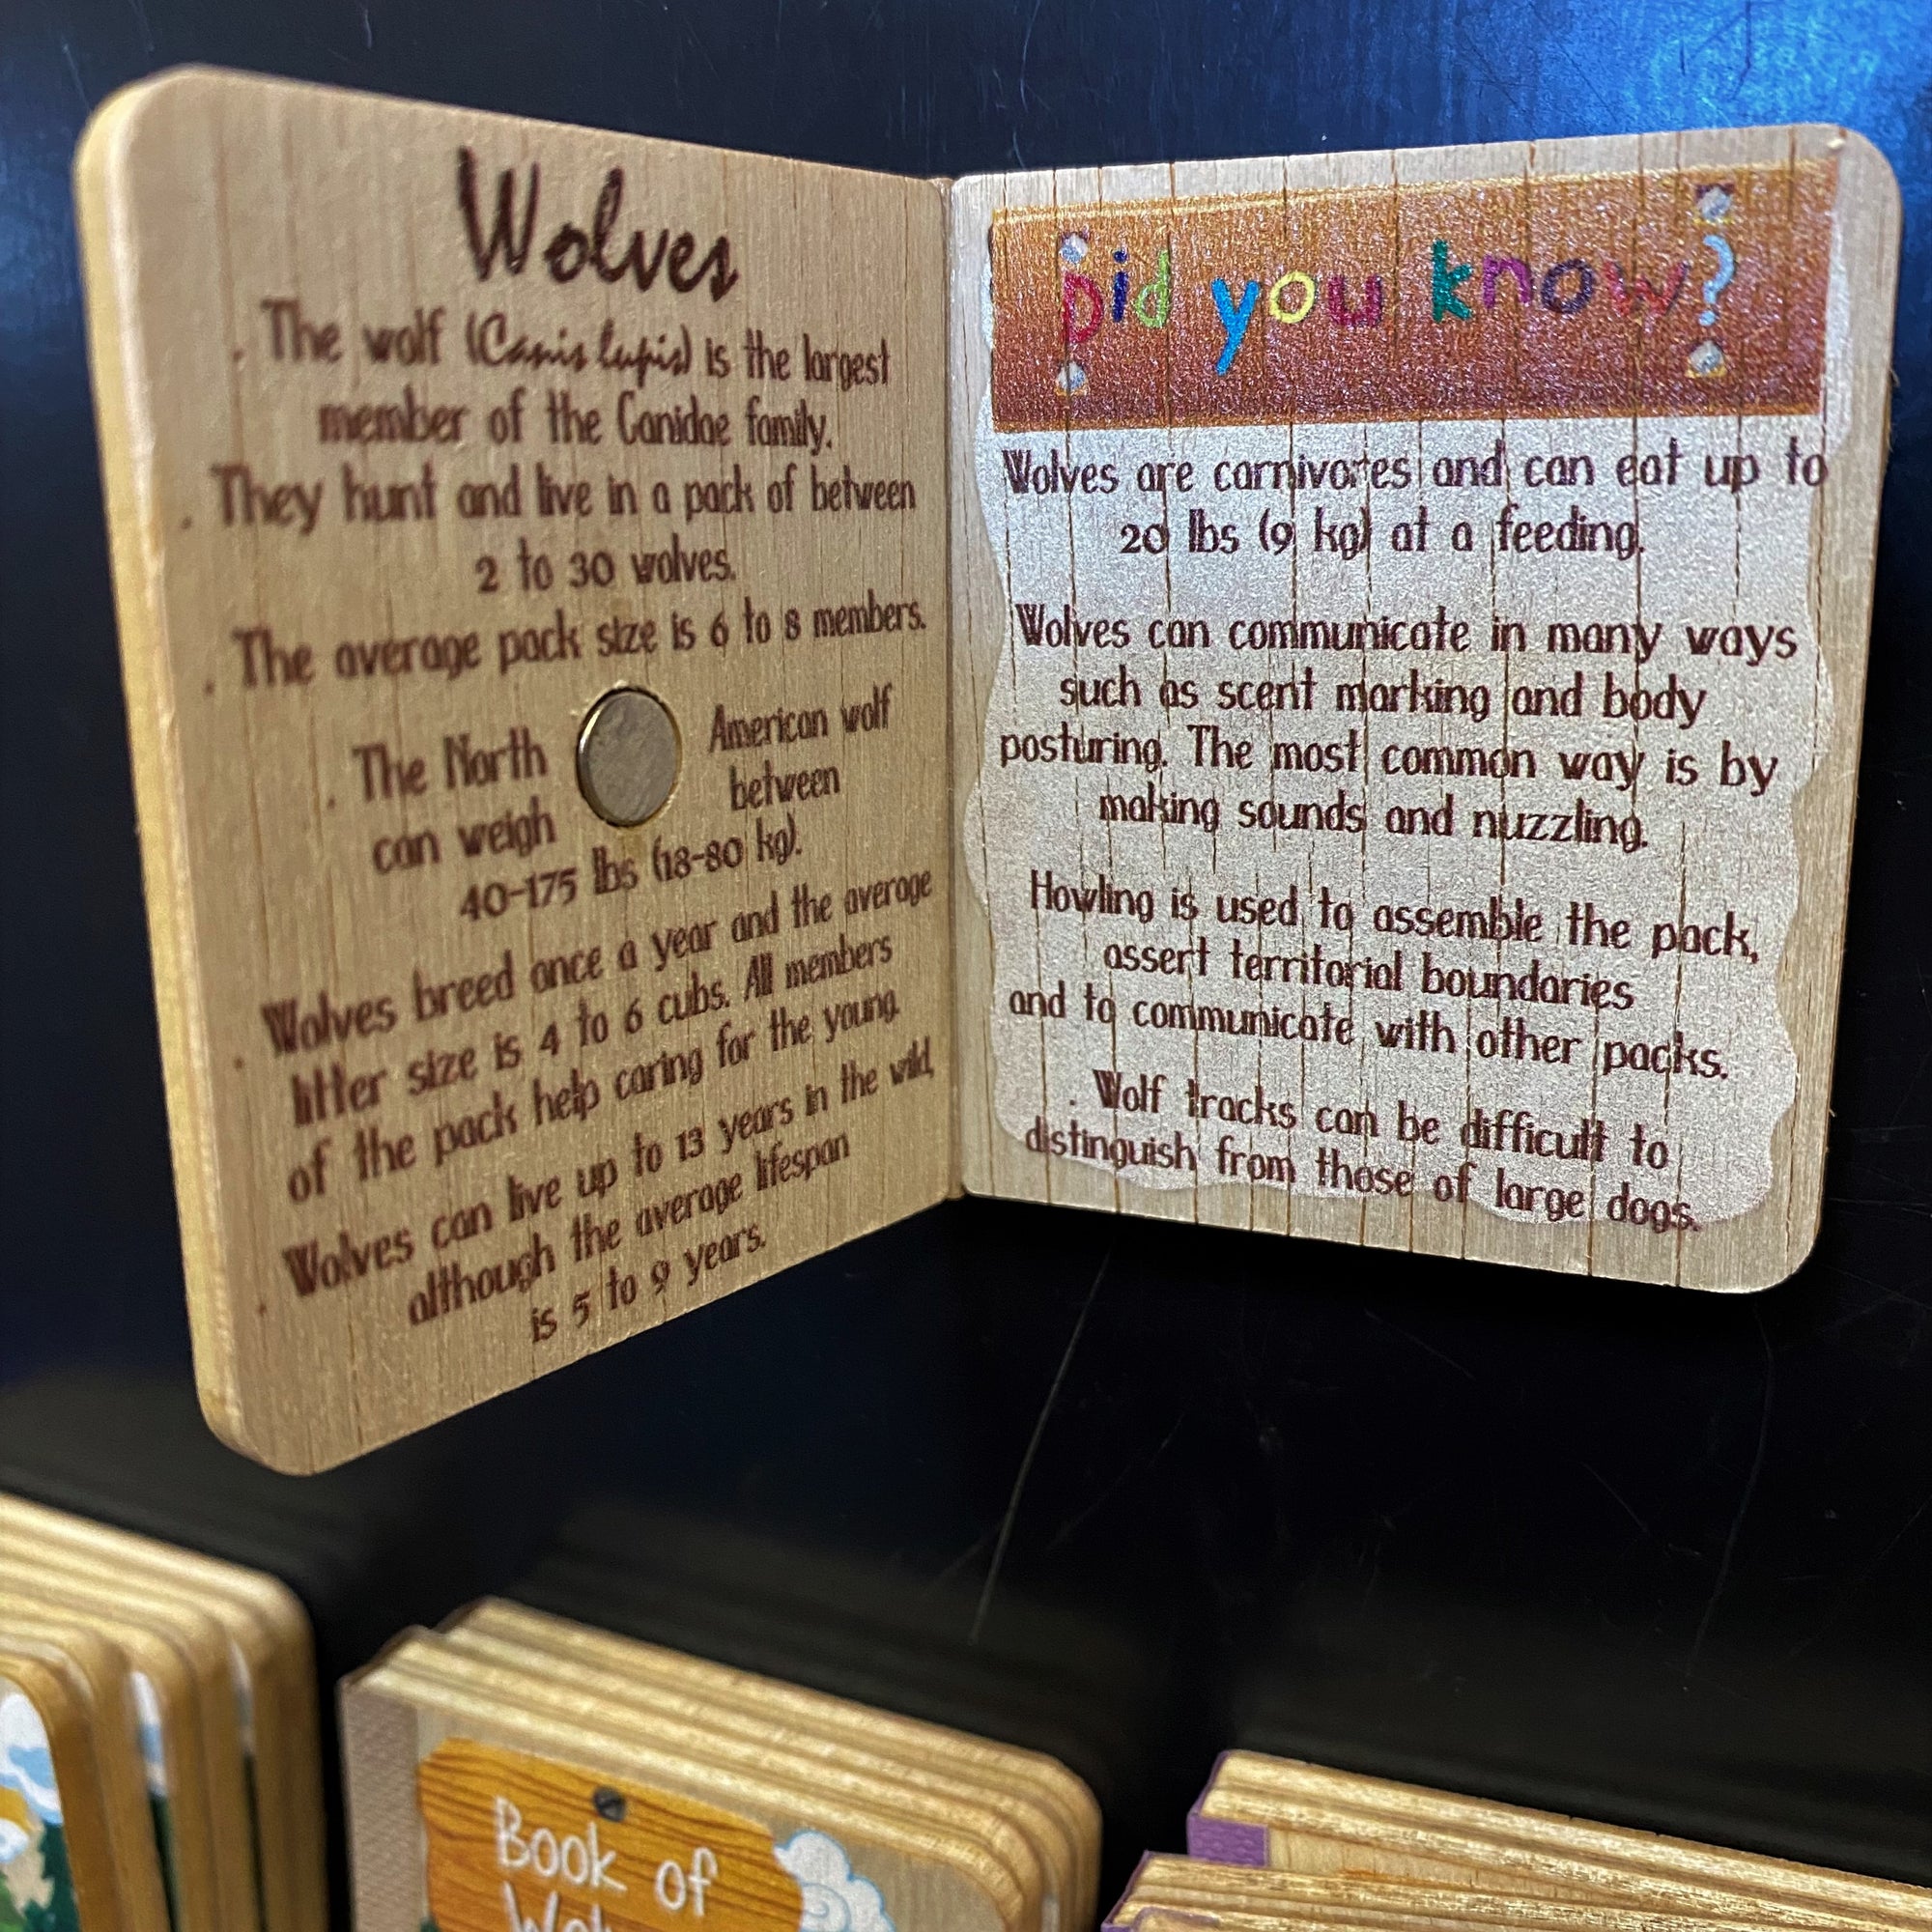 Wolves
. The wolf (Canis lupis) is the largest
member of the Canidae family.
. They hunt and live in a pack of between
2 to 30 wolves.
. The average pack size is 6 to 8 members.
. The North American wolf
can weigh between
40-175 lbs (18-80 kg).
. Wolves breed once a year and the average
litter size is 4 to 6 cubs. All members
of the pack help caring for the young.
. Wolves can live up to 13 years in the wild,
although the average lifespan
is 5 to 9 years.
Did you know?
Wolves are carnivores and can eat up to
20 lbs (9 kg) at a feeding.
Wolves can communicate in many ways
such as scent marking and body
posturing. The most common way is by
making sounds and nuzzling.
Howling is used to assemble the pack,
assert territorial boundaries
and to communicate with other packs.
. Wolf tracks can be difficult to
distinguish from those of large dogs.
Book of